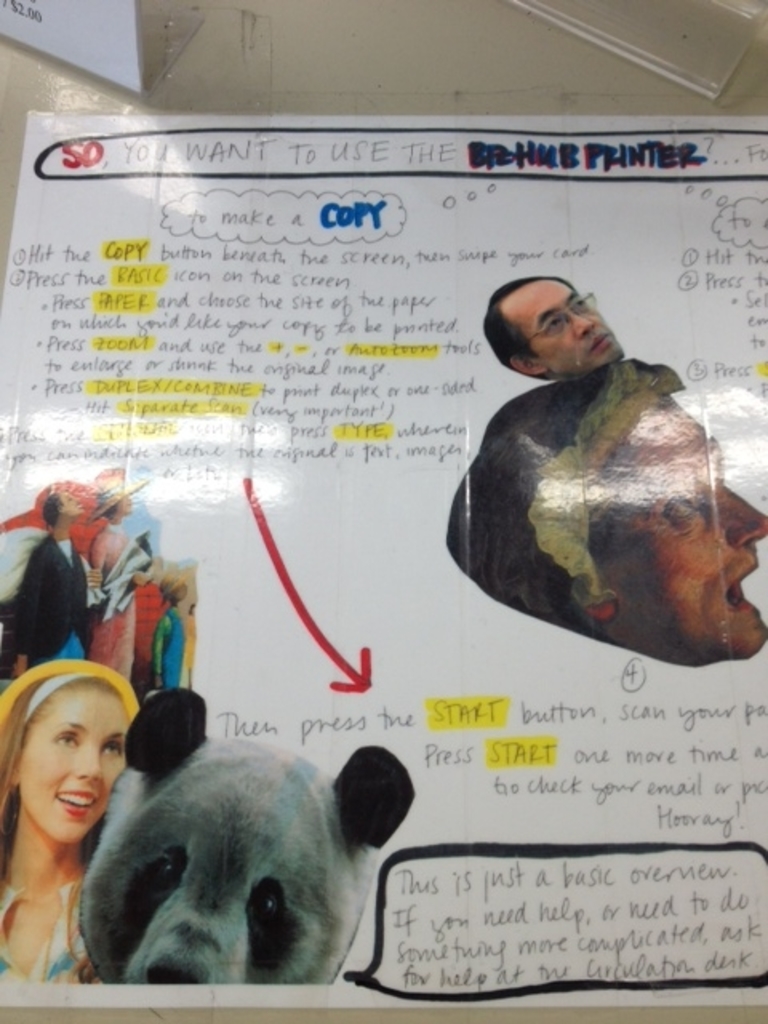 / $2.00
SO, YOU WANT TO USE THE BIZHUB PRINTER?... FO
to make a COPY
① Hit the COPY button beneath the screen, then swipe your card.
② Press the BASIC icon on the screen
• Press PAPER and choose the size of the paper
on which you'd like your copy to be printed.
• Press ZOOM and use the +, -, or AUTOZOOM tools
to enlarge or shrink the original image.
• Press DUPLEX/COMBINE to print duplex or one-sided
Hit Separate Scan (very important!)
Press the icon then press TYPE, wherein
you can indicate whether the original is text, images
or both
to
① Hit th
② Press t
• Sel
em
to
③ Press
④
Then press the START button, scan your pa
Press START one more time a
to check your email or pic
Hooray!
This is just a basic overview.
If you need help, or need to do
something more complicated, ask
for help at the circulation desk.